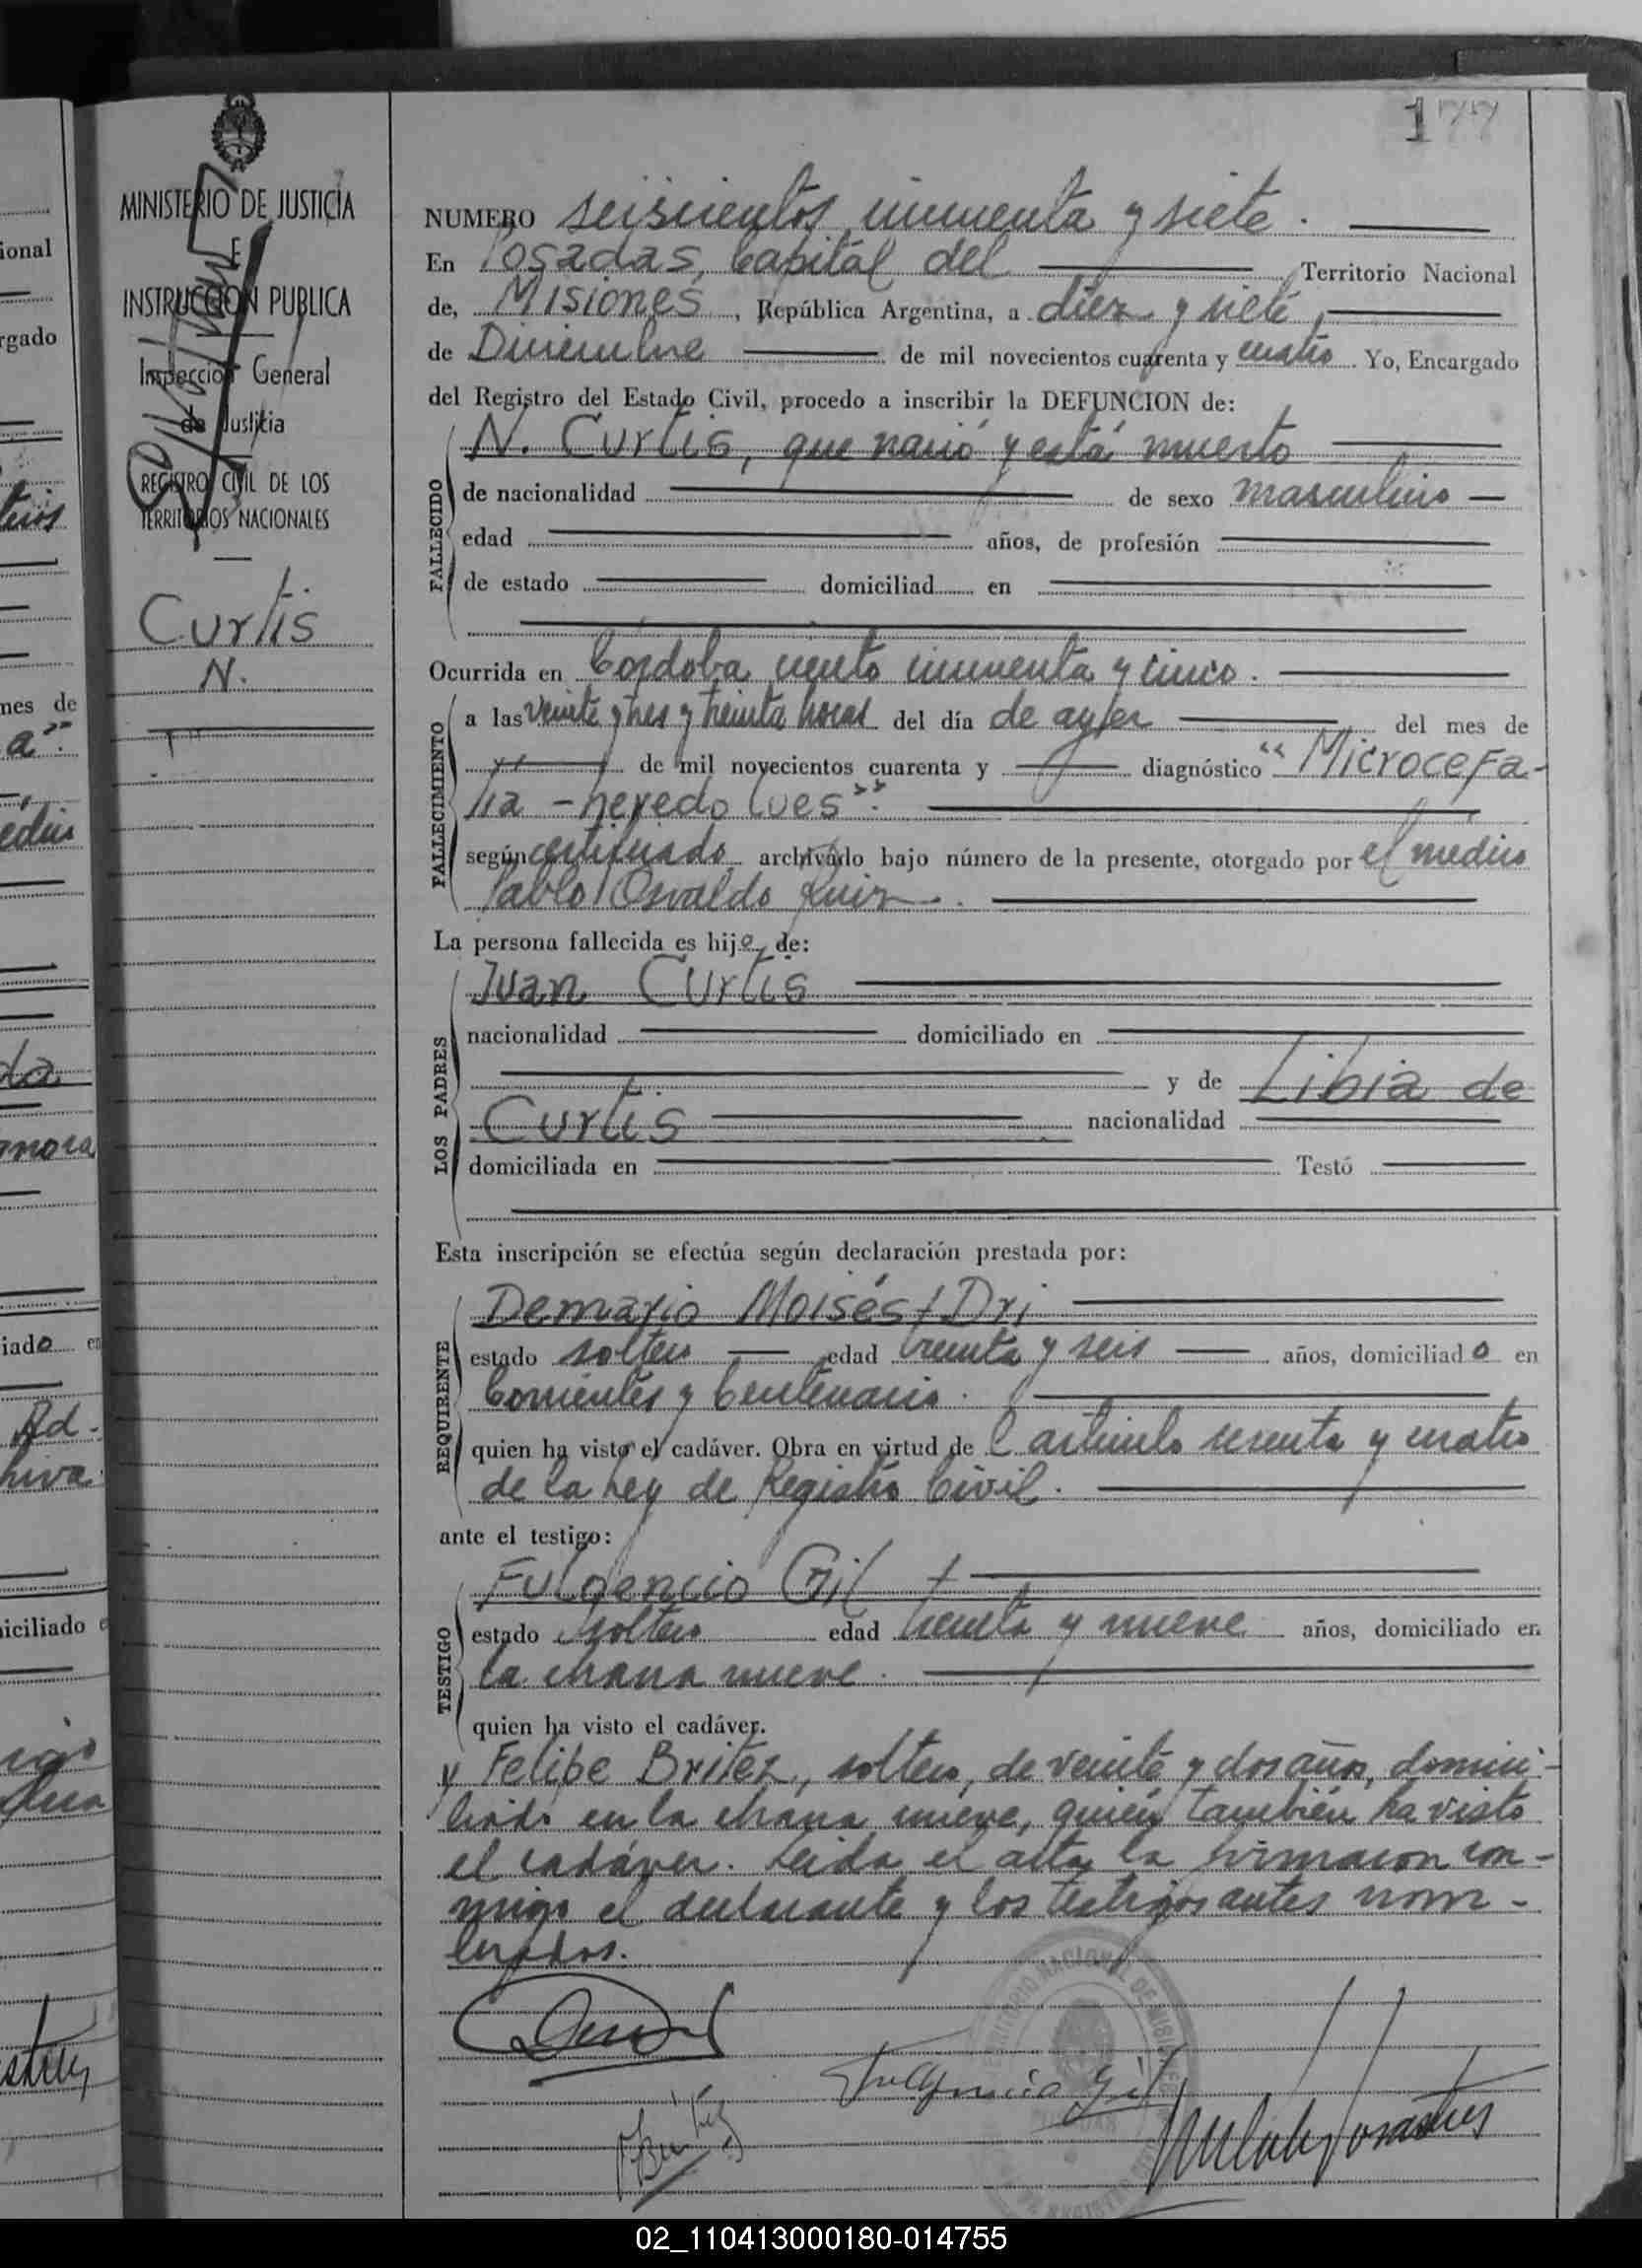 177
MINISTERIO DE JUSTICIA
E
INSTRUCCION PUBLICA
Inspección General
de Justicia
REGISTRO CIVIL DE LOS
TERRITORIOS NACIONALES
Curtis
N.
NUMERO seiscientos cincuenta y siete.
En Posadas, Capital del Territorio Nacional
de, Misiones, República Argentina, a diez y siete
de Diciembre de mil novecientos cuarenta y cuatro. Yo, Encargado
del Registro del Estado Civil, procedo a inscribir la DEFUNCION de:
N. Curtis, que nació y está muerto
FALLECIDO
de nacionalidad de sexo masculino
edad años, de profesión
de estado domiciliad en
Ocurrida en Córdoba ciento cincuenta y cinco.
FALLECIMIENTO
a las veinte y tres y treinta horas del día de ayer del mes de
de mil novecientos cuarenta y diagnóstico "Microcefa-
lia - heredo lues".
según certificado archivado bajo número de la presente, otorgado por el médico
Pablo Osvaldo Ruiz.
La persona fallecida es hijo de:
LOS PADRES
Juan Curtis
nacionalidad domiciliado en
y de Libia de
Curtis nacionalidad
domiciliada en Testó
Esta inscripción se efectúa según declaración prestada por:
REQUIRENTE
Demario Moisés Dri
estado soltero edad treinta y seis años, domiciliado en
Corrientes y Centenario.
quien ha visto el cadáver. Obra en virtud del artículo sesenta y cuatro
de la Ley de Registro Civil.
ante el testigo:
TESTIGO
Fulgencio Gil
estado soltero edad treinta y nueve años, domiciliado en
la chacra nueve.
quien ha visto el cadáver.
y Felipe Britez, soltero, de veinte y dos años, domici-
liado en la chacra nueve, quien también ha visto
el cadáver. Leida el acta la firmaron con-
migo el declarante y los testigos antes nom-
brados.
Fulgencio Gil
F Britez
02_110413000180-014755